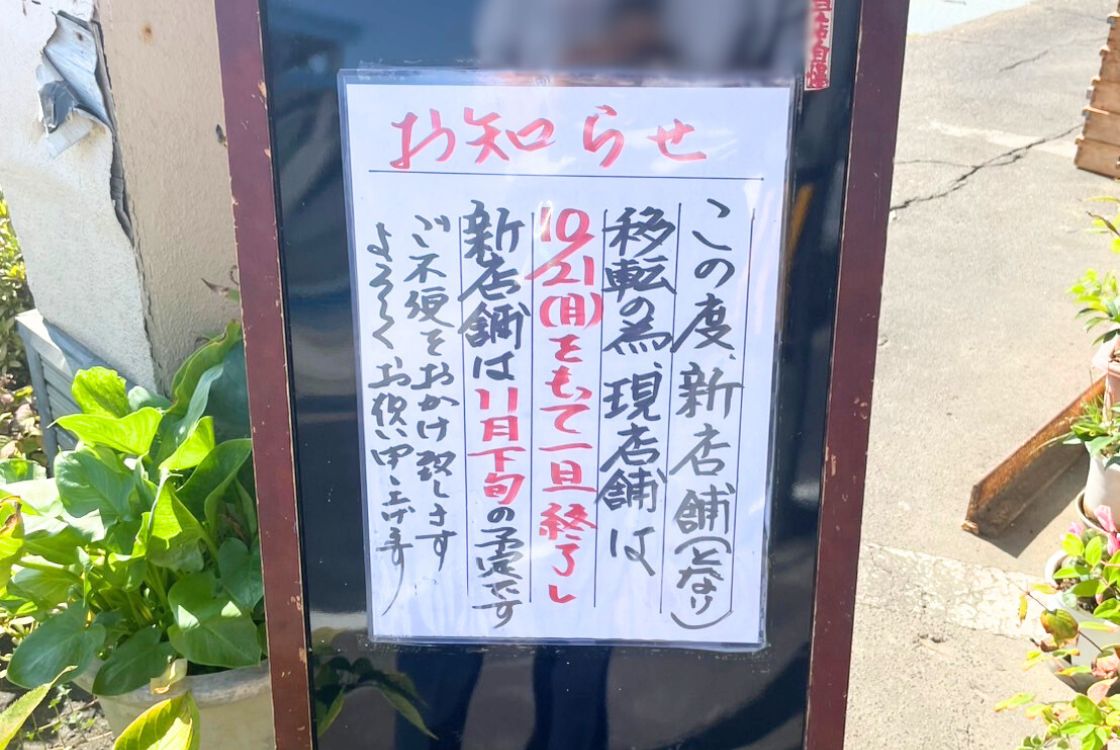 自慢
お知らせ
この度、新店舗(となり)
移転の為、現店舗は
10/21(月)をもって一旦終了し
新店舗は11月下旬の予定です
ご不便をおかけ致します
よろしくお願い申し上げます